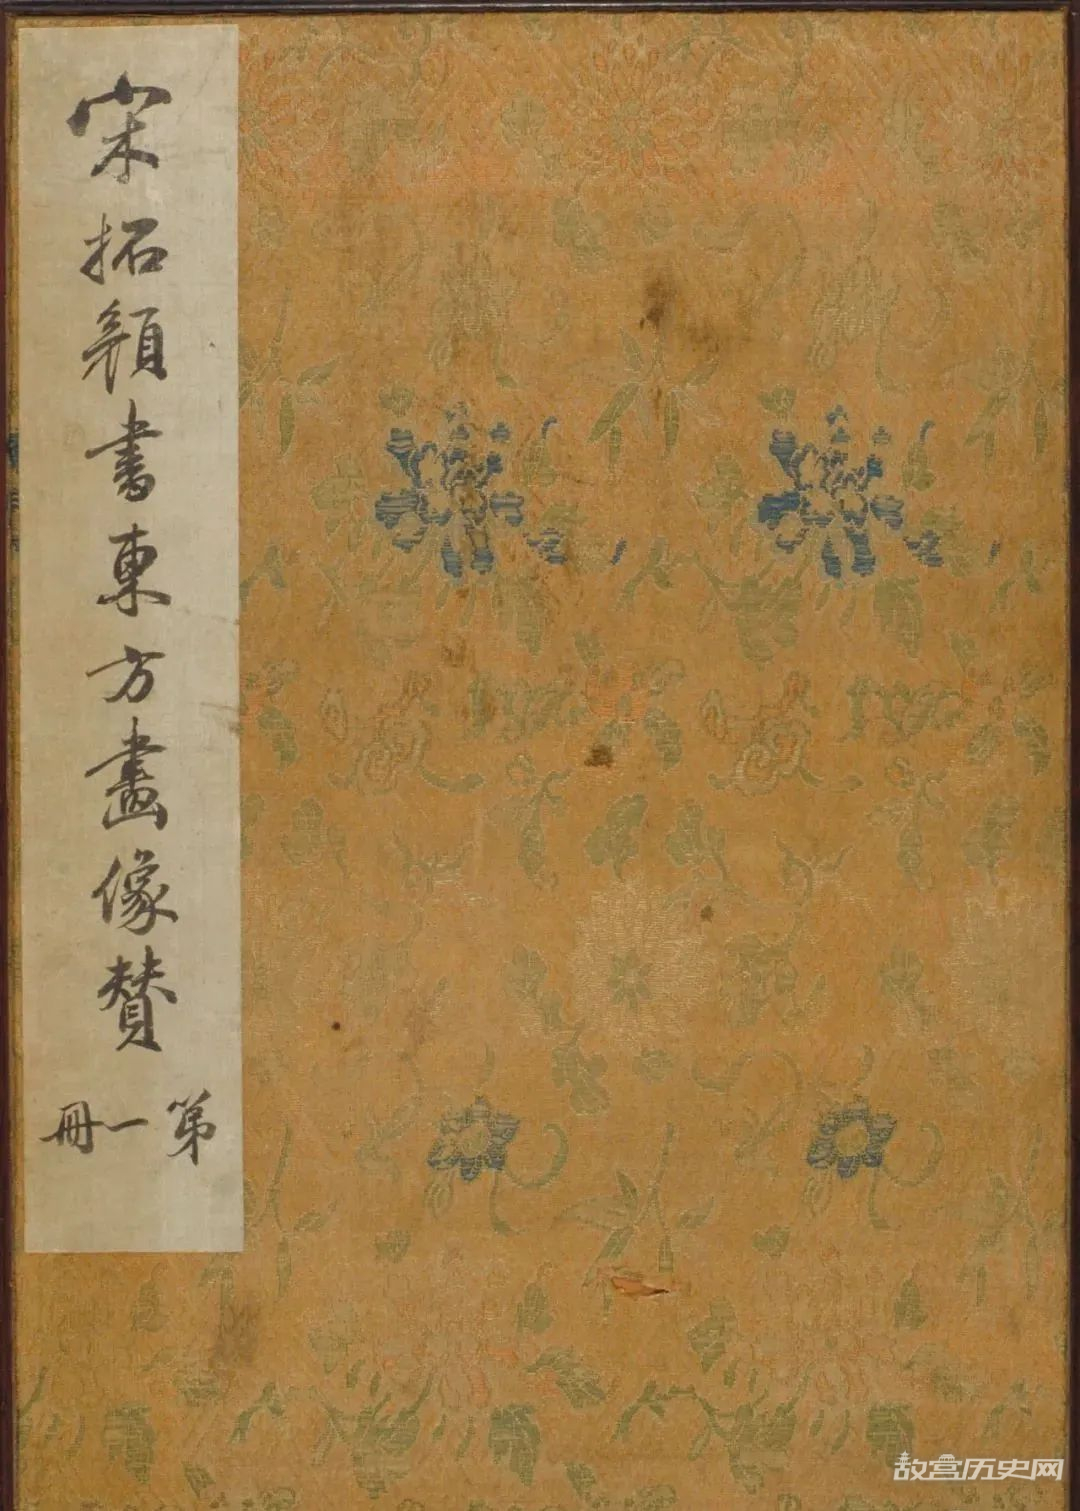 宋拓顔書東方畫像賛
第一冊
故宫历史网